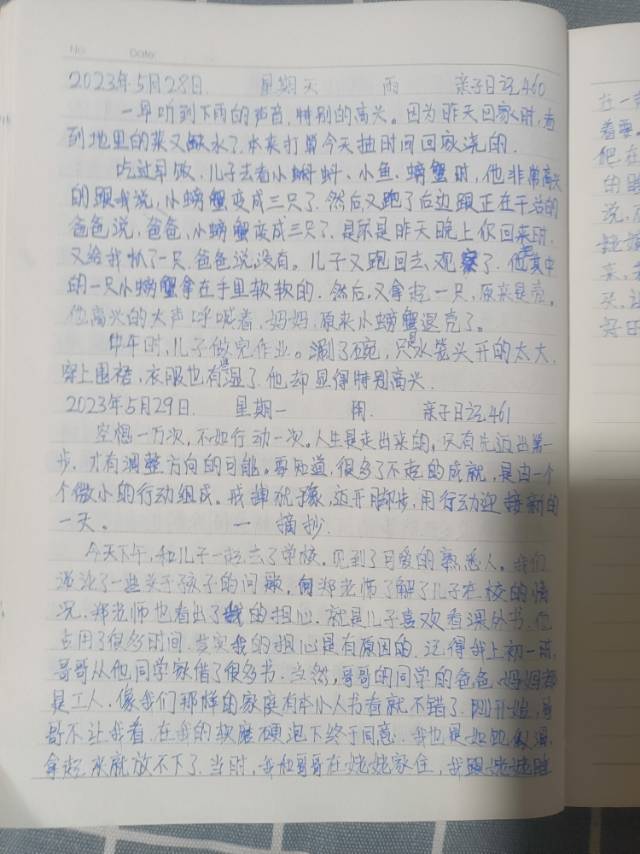 No.   Date:
2023年5月28日. 星期天 雨 亲子日记460
一早听到下雨的声音,特别的高兴。因为昨天回家时,看
到地里的菜又缺水了.本来打算今天抽时间回家浇的.
吃过早饭,儿子去看小蝌蚪、小鱼、螃蟹时,他非常高兴
的跟我说,小螃蟹变成三只了.然后又跑了后边跟正在干活的
爸爸说,爸爸,小螃蟹变成三只了.是不是昨天晚上你回来时,
又给我抓了一只.爸爸说没有。儿子又跑回去观察了.他把其中
的一只小螃蟹拿在手里软软的.然后,又拿起一只,原来是壳。
他高兴的大声呼喊着,妈妈,原来小螃蟹退壳了。
中午时,儿子做完作业。涮了碗,只是水笼头开的太大,
穿上围裙,衣服也有湿了.他却显得特别高兴.
2023年5月29日. 星期一 阴. 亲子日记461
空想一万次,不如行动一次。人生是走出来的,只有先迈出第一
步,才有调整方向的可能。要知道,很多了不起的成就,是由一个
个微小的行动组成。戒掉犹豫,迈开脚步,用行动迎接新的
一天。 一 摘抄.
今天下午,和儿子一起去了学校,见到了可爱的熟悉人。我们
谈论了一些关于孩子的问题,向郑老师了解了儿子在校的情
况,郑老师也看出了我的担心,就是儿子喜欢看课外书.他
占用了很多时间.其实我的担心是有原因的.记得我上初一时,
哥哥从他同学家借了很多书.当然,哥哥的同学的爸爸、妈妈都
是工人.像我们那样的家庭有本小人书看就不错了.刚开始,哥
哥不让我看.在我的软磨硬泡下终于同意.我也是如饥似渴,
拿起来就放不下了.当时,我和哥哥在姥姥家住,我跟姥姥睡